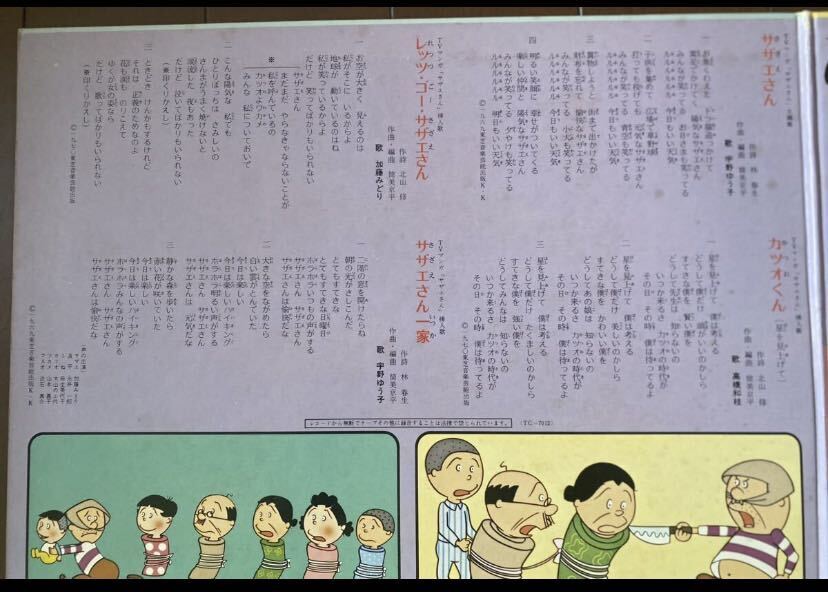 TVマンガ「サザエさん」主題歌
サザエさん
作詩 林 春生
作曲・編曲 筒美京平
歌 宇野ゆう子
一
お魚くわえた ドラ猫追っかけて
みんなが笑ってる お日さまも笑ってる
ルルルルルル 今日もいい天気
二
みんなが笑ってる 青空も笑ってる
ルルルルルル 今日もいい天気
三
買物しようと 街まで出かけたが
財布を忘れて 愉快なサザエさん
みんなが笑ってる 小犬も笑ってる
ルルルルルル 今日もいい天気
四
明るい笑顔に 幸せがついてくる
楽しい仲間と 陽気なサザエさん
みんなが笑ってる 夕やけも笑ってる
ルルルルルル 明日もいい天気
©一九六九東芝音楽芸能出版K・K
TVマンガ「サザエさん」挿入歌
レッツ・ゴー・サザエさん
作詩 北山 修
作曲・編曲 筒美京平
歌 加藤みどり
一
お空が大きく 見えるのは
私がそこに いるからよ
地球が 動いているのはね
私が笑っているからよ
だけど 笑ってばかりもいられない
サザエさん
※
まだまだ やらなきゃならないことが
私を呼んでいるの
カツオよワカメ
みんな 私についておいで
二
こんな陽気な 私でも
ひとりぼっちは さみしいの
さんまがうまく焼けないと
涙流した 夜もあった
だけど 泣いてばかりもいられない
(※印くりかえし)
三
ときどき けんかもするけれど
それは 正義のためなのよ
花も嵐も のりこえて
ゆくが女の姿なら
だけど 歌ってばかりもいられない
(※印くりかえし)
©一九七〇東芝音楽芸能出版
TVマンガ「サザエさん」挿入歌
カツオくん
(星を見上げて)
作詩 北山 修
作曲・編曲 筒美京平
歌 高橋和枝
一
星を見上げて 僕は考える
どうして僕だけ 頭がいいのかしら
すてきな僕を 賢い僕を
どうして先生は 知らないの
いつか来るさ カツオの時代が
その日 その時 僕は待ってるよ
二
星を見上げて 僕は考える
どうして僕だけ 美しいのかしら
すてきな僕を かわいい僕を
どうしてあの娘は 知らないの
いつか来るさ カツオの時代が
その日 その時 僕は待ってるよ
三
星を見上げて 僕は考える
どうして僕だけ たくましいのかしら
すてきな僕を 強い僕を
どうしてみんなは 知らないの
いつか来るさ カツオの時代が
その日 その時 僕は待ってるよ
©一九七〇東芝音楽芸能出版
TVマンガ「サザエさん」挿入歌
サザエさん一家
作詩 林 春生
作曲・編曲 筒美京平
歌 宇野ゆう子
一
二階の窓を 開けたらね
朝の光がさしこんだ
とてもすてきな
とてもすてきな日曜日
ホラホラいつもの声がする
サザエさん サザエさん
サザエさんは愉快だな
二
大きな空をながめたら
白い雲が とんでいた
今日は楽しい
今日は楽しい ハイキング
ホラホラ明るい 声がする
サザエさん サザエさん
サザエさんは 元気だな
三
静かな森を歩いたら
赤い花が 咲いていた
今日は楽しい
今日は楽しい ハイキング
ホラホラみんなの声がする
サザエさん サザエさん
サザエさんは 愉快だな
©一九六九東芝音楽芸能出版K・K
レコードから無断でテープその他に録音することは法律で禁じられています。
(TC-7012)